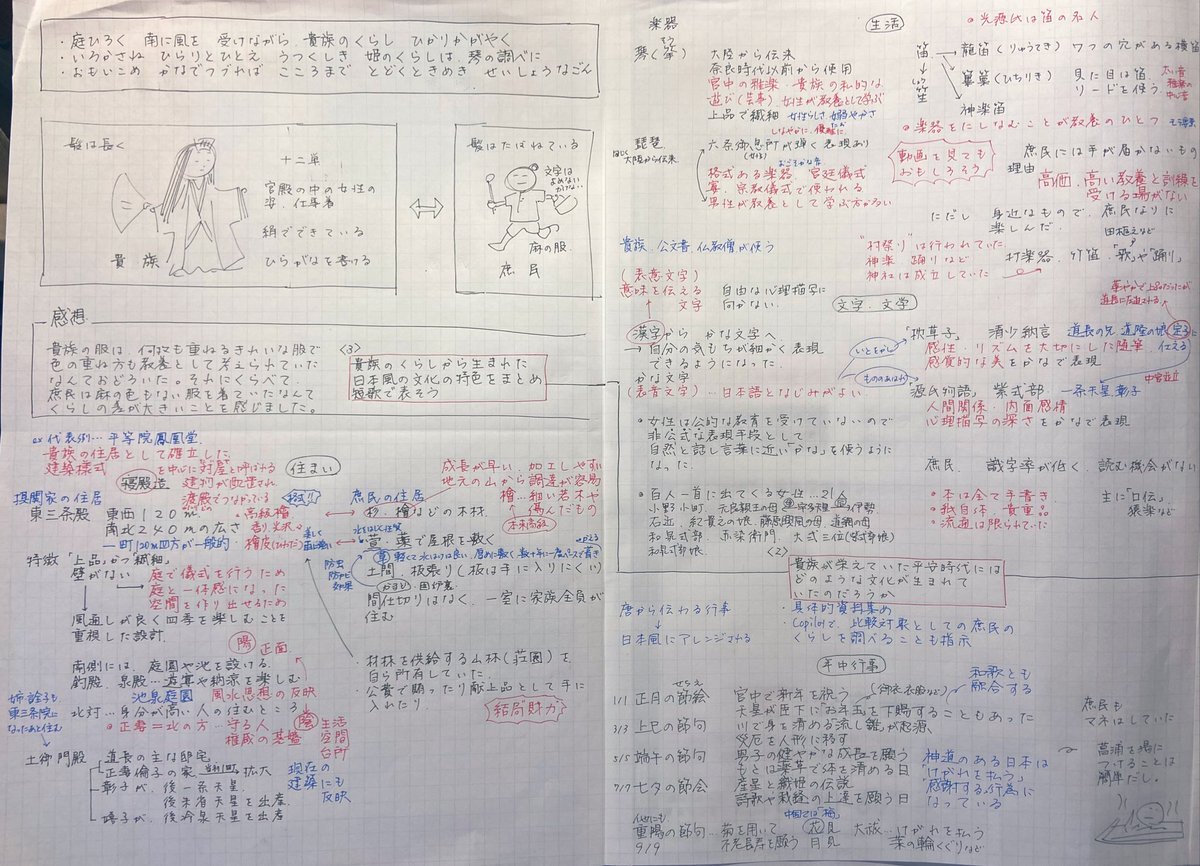 ・庭ひろく 南に風を 受けながら 貴族のくらし ひかりかがやく
・いろかさね ひらりとひとえ うつくしき 姫のくらしは 琴の調べに
・おもいこめ かなでつづれば こころまで とどくときめき せいしょうなごん
髪は長く
十二単
宮殿の中の女性の
姿、仕事着
絹でできている
ひらがなを書ける
貴族
髪はたばねている
文字は
よめない
かけない
麻の服
庶民
感想
貴族の服は、何枚も重ねるきれいな服で
色の重ね方も教養として考えられていた
なんておどろいた。それにくらべて、
庶民は麻の色もない服を着ていたなんて
くらしの差が大きいことを感じました。
<3>
貴族のくらしから生まれた
日本風の文化の特色をまとめ
短歌で表そう
ex 代表例… 平等院鳳凰堂
貴族の住居として確立した
建築様式
寝殿造
を中心に対屋と呼ばれる
建物が配置され
渡殿でつながっている
住まい
摂関家の住居
東三条殿 東西120m
南北240mの広さ
一町120m四方が一般的
高級檜
檜皮(ひわだ)
特徴「上品」かつ「繊細」
壁がない
庭で儀式を行うため
庭と一体感になった
空間を作り出せるため
風通しが良く四季を楽しむことを
重視した設計
陽 正面
南側には、庭園や池を設ける
釣殿、泉殿…遊宴や納涼を楽しむ
池泉庭園 風水思想の反映
北対…身分が高い人の住むところ
正妻=北の方…守る人
権威の基盤
陰 生活
空間
台所
姉 詮子も
東三条院に
なったあと住む
土御門殿 道長の主な邸宅
正妻倫子の家 拡大
彰子が、後一条天皇
後朱雀天皇を出産
嬉子が、後冷泉天皇を出産
現在の
建築にも
反映
庶民の住居
成長が早い、加工しやすい
地元の山から調達が容易
檜…細い若木や
傷んだもの
本来高級
杉、檜などの木材
水をはじく性質
萱・藁で屋根を敷く
p23
防虫
防カビ
効果
土間、板張り(板は手に入りにくい)
かまど・囲炉裏
間仕切りはなく、一室に家族全員が
住む
・材林を供給する山林(荘園)を
自ら所有していた。
・公費で賄ったり献上品として手に
入れたり。
結局財力
楽器
生活
光源氏は笛の名人
琴(箏)
大陸から伝来
奈良時代以前から使用
宮中の雅楽、貴族の私的な
遊び(芸事)女性が教養として学ぶ
上品で繊細 女性らしさ
しなやかに、優雅に
六条御息所が弾く表現あり
琵琶
大陸から伝来
格式ある楽器 宮廷儀式
宴、宗教儀式で使われる
男性が教養として学ぶ方が多い
笛
龍笛(りゅうてき)7つの穴がある横笛
篳篥(ひちりき)
リードを使う。
神楽笛
笙
楽器をたしなむことが教養のひとつ
動画を見ても
おもしろそう
庶民には手が届かないもの
理由
高価、高い教養と訓練を
受ける場がない
ただし 身近なもので、庶民なりに
楽しんだ。
田植えなど
村楽器、竹笛、「歌」や「踊り」
"村祭り"は行われていた
神楽、踊りなど
神社は成立していた
貴族、公文書、仏教僧が使う
(表意文字)
意味を伝える
文字
自由な心理描写に
向かない。
文字、文学
漢字から かな文字へ
→自分の気もちが細かく表現
できるようになった。
かな文字
(表音文字)…日本語となじみがよい
いとをかし
「枕草子」 清少納言
道長の兄 道隆の娘 定子に
仕える
感性・リズムを大切にした随筆
感覚的な美をかなで表現
もののあはれ
「源氏物語」 紫式部 一条天皇 彰子
中宮並立
人間関係・内面感情
心理描写の深さをかなで表現
・女性は公的な教育を受けていないので
非公式な表現手段として
自然と話し言葉に近い「かな」を使うように
なった。
庶民 識字率が低く、読む機会がない
・百人一首に出てくる女性…21人
小野小町 元良親王の母 伊勢
右近、紀貫之の娘、藤原興風の母、道綱の母
和泉式部、赤染衛門、大弐三位(紫式部娘)
・本は全て手書き
・紙自体、貴重品
・流通は限られていた
主に「口伝」
猿楽など
<2>
貴族が栄えていた平安時代には
どのような文化が生まれて
いたのだろうか
・具体的資料集め
・Copilotで、比較対象としての庶民の
くらしを調べることも指示
唐から伝わる行事
日本風にアレンジされる
年中行事
和歌とも
融合する
1/1 正月の節会 宮中で新年を祝う
天皇が臣下にお年玉を下賜することもあった
3/3 上巳の節句 川で身を清める流し雛が起源、
災厄を人形に移す
5/5 端午の節句 男子の健やかな成長を願う
もとは薬草で体を清める日
7/7 七夕の節会 産星と織姫の伝説
詩歌や裁縫の上達を願う日
重陽の節句…菊を用いて
9/9 不老長寿を願う
中国では「梅」
花見
月見
大祓…けがれを払う
茅の輪くぐりなど
神道のある日本は
「けがれを払う」
「感謝する」行為に
なっている
庶民も
マネはしていた
菖蒲を湯に
つけることは
簡単だし。